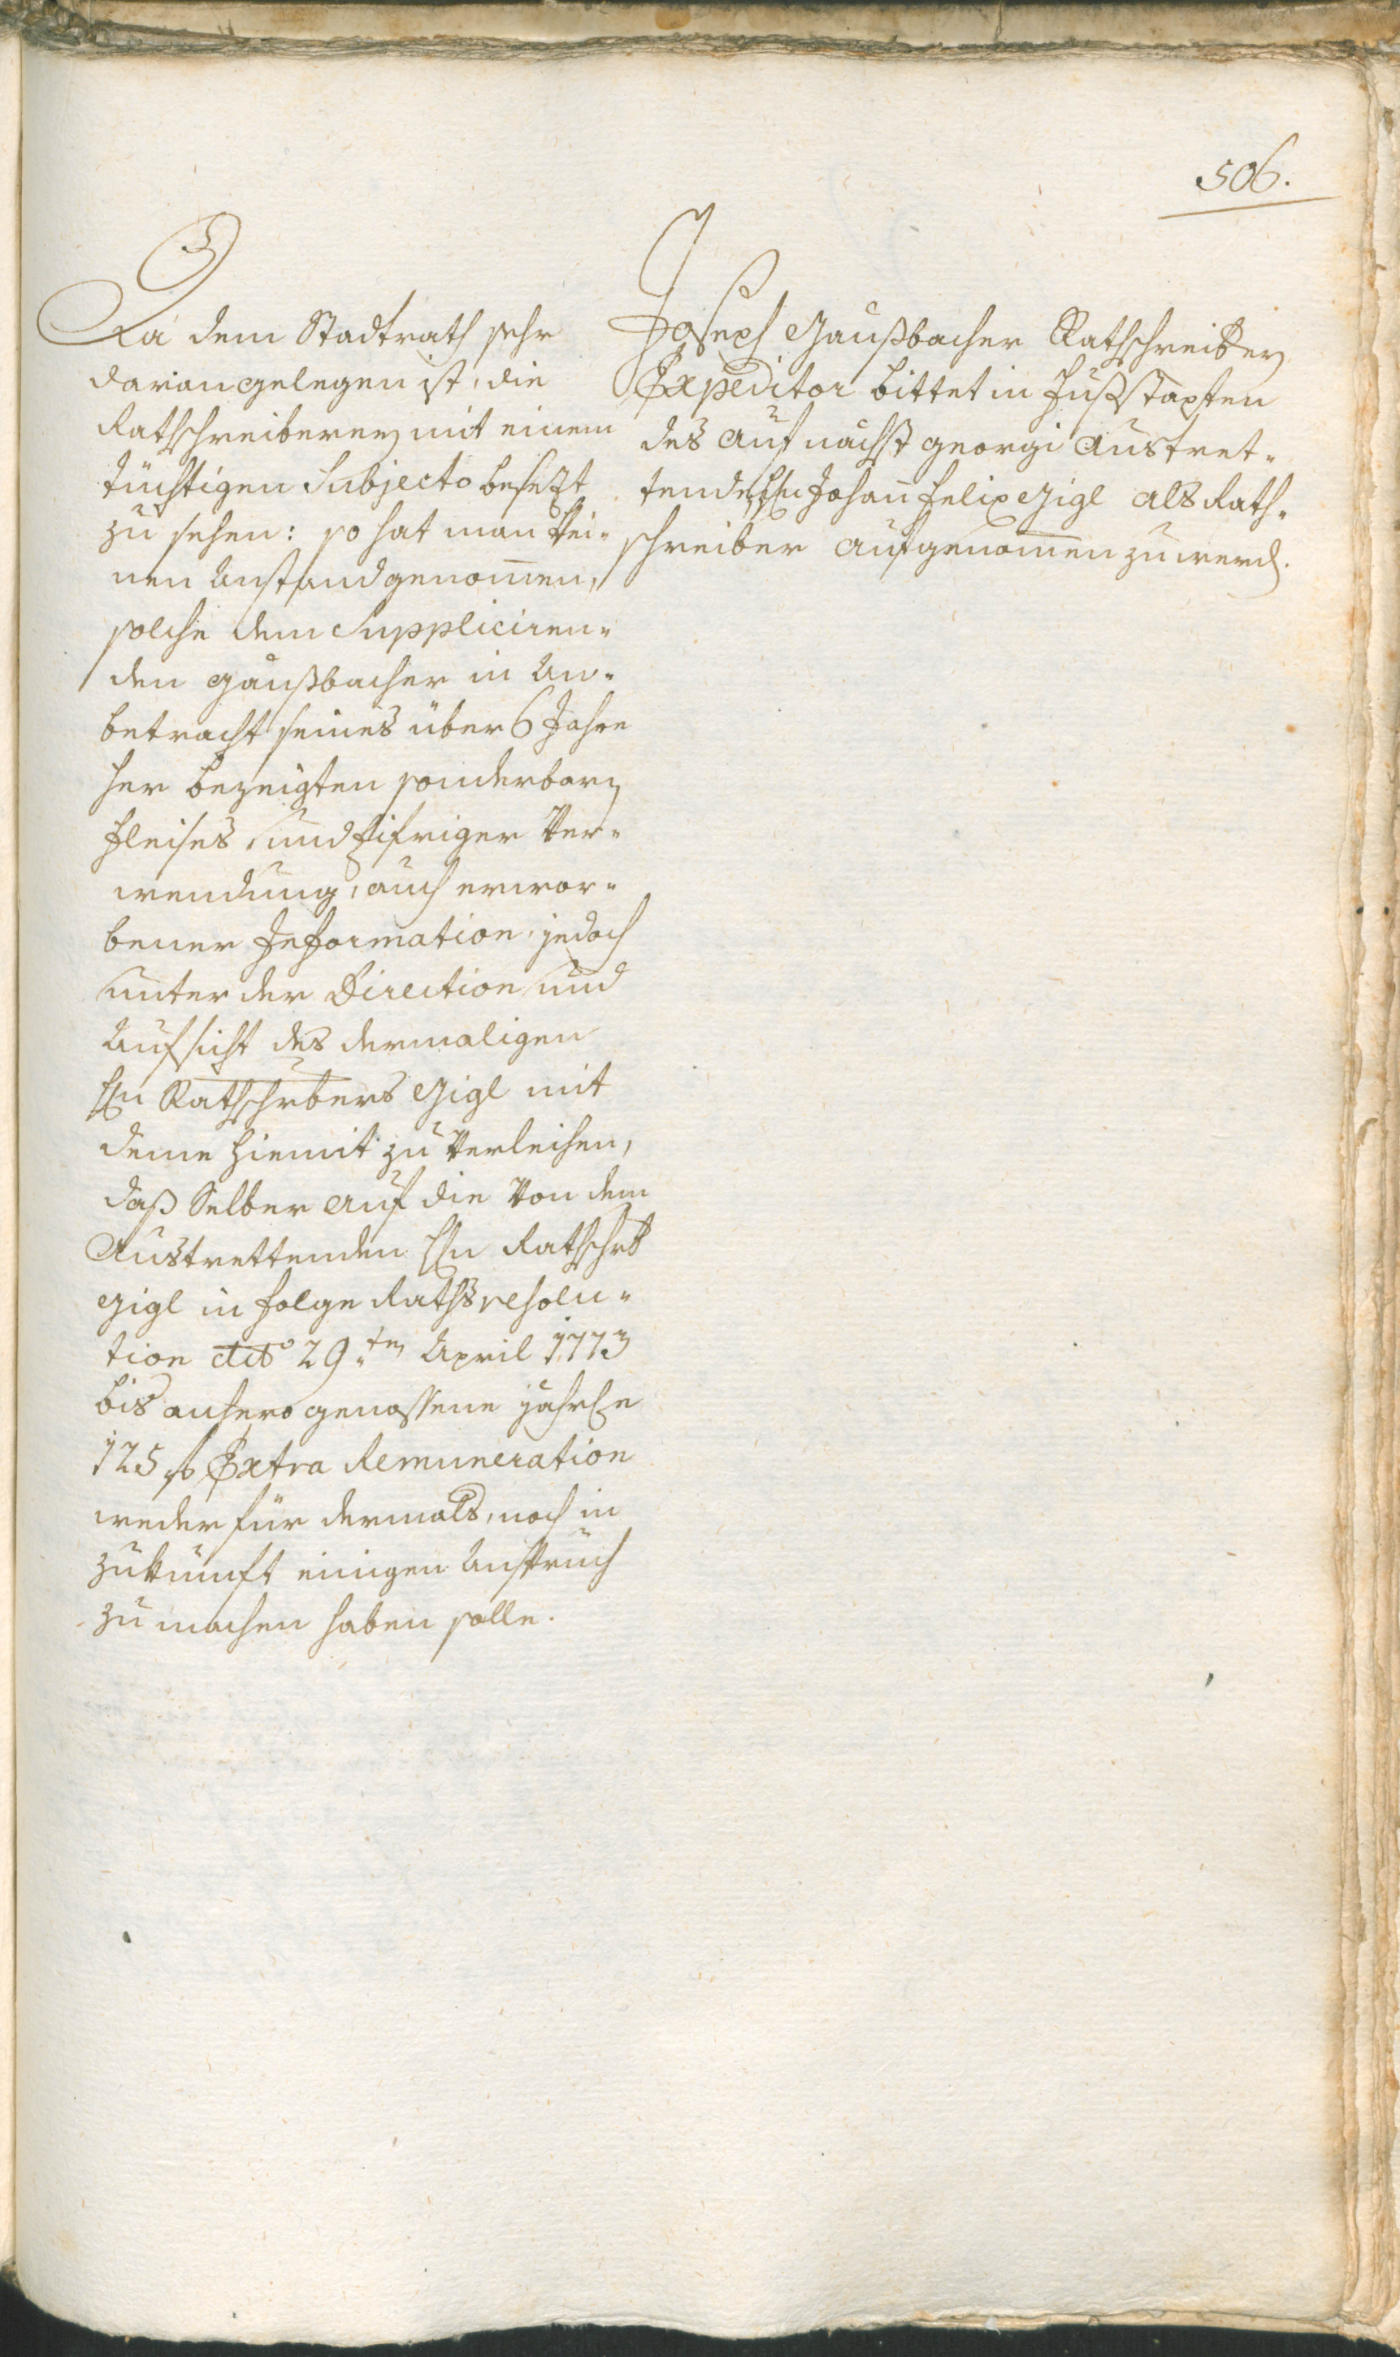 506.
Da dem Stadtrath sehr
daran gelegen ist, die
Rathschreiberey mit einem
tüchtigen Subjecto besezt
zu sehen: so hat man kei-
nen Anstand genom̅en,
solche dem Suppliciren-
den Gaußbacher in An-
betracht seines über 6 Jahre
her bezeigten sonderbarn
Fleises, und Eifriger Ver-
wendung, auch erwor-
bener Information, jedoch
unter der Direction und
Aufsicht des dermaligen
Hn Rathschrbers Gigl mit
deme hiemit zu verleihen,
daß Selber auf die von dem
Austrettenden Hn Rathschrb
Gigl in Folge Rathsresolu-
tion dtto 29ten April 1773
bis anhero genossene jährle
125 f Extra Remuneration
weder für dermals, noch in
Zukunft einigen Anspruch
zu machen haben solle.
Joseph Gaußbacher Rathschreiberey
Expeditor bittet in Fußstapfen
des auf nächst Georgi Austret-
tenden Hn Johan̅ Felix Gigl als Rath-
schreiber aufgenom̅en zu werd.